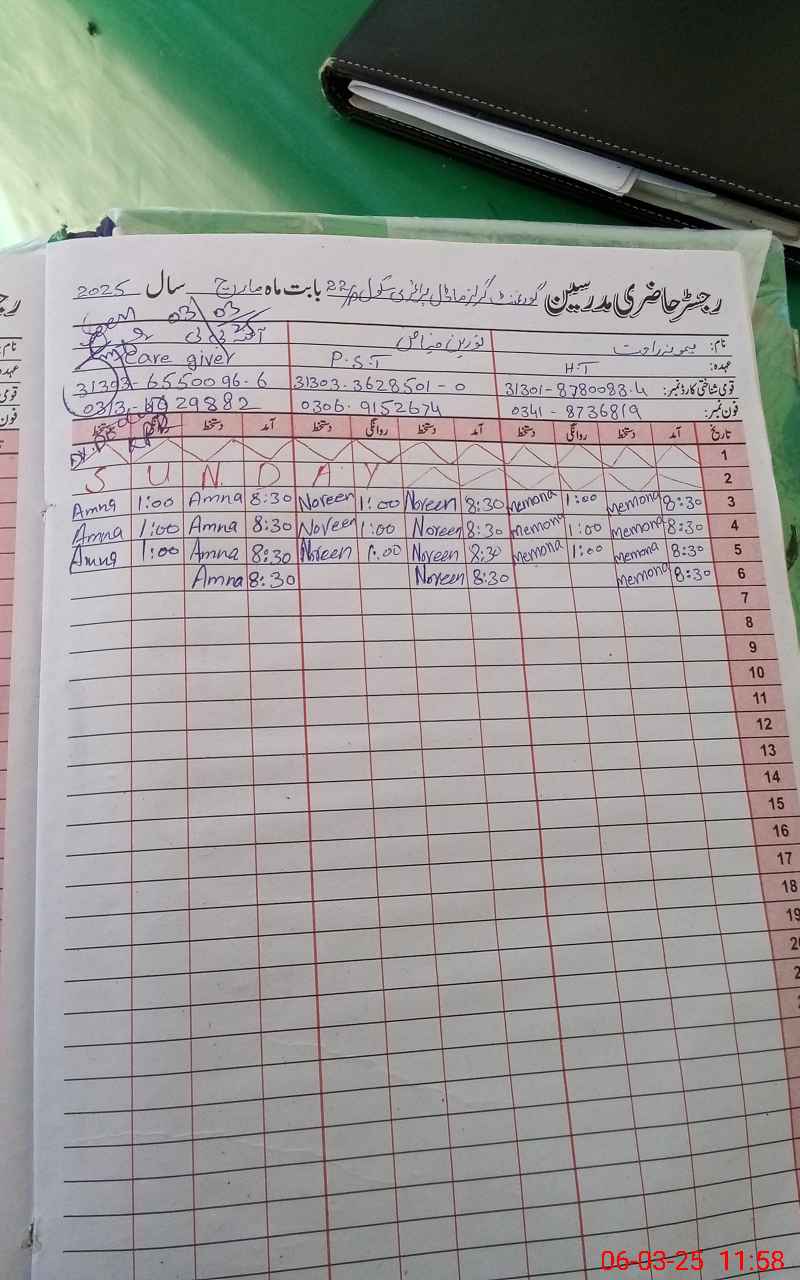 رجسٹر حاضری مدرسین گورنمنٹ گرلز ماڈل پرائمری سکول 22/P بابت ماہ مارچ سال 2025
نام: میمونہ راحت نورین فیاض
عہدہ: H.T P.S.T Care giver
قومی شناختی کارڈ نمبر: 31301-8780083-4 31303-3628501-0 31303-6550096-6
فون نمبر: 0341-8736819 0306-9152674
تاریخ آمد دستخط روانگی دستخط آمد دستخط روانگی دستخط آمد دستخط
1
2 S U N D A Y
3 8:30 Memona 1:00 Memona 8:30 Noreen 1:00 Noreen 8:30 Amna 1:00 Amna
4 8:30 Memona 1:00 Memona 8:30 Noreen 1:00 Noreen 8:30 Amna 1:00 Amna
5 8:30 Memona 1:00 Memona 8:30 Noreen 1:00 Noreen 8:30 Amna 1:00 Amna
6 8:30 Memona 8:30 Noreen 8:30 Amna
7
8
9
10
11
12
13
14
15
16
17
18
19
06-03-25 11:58